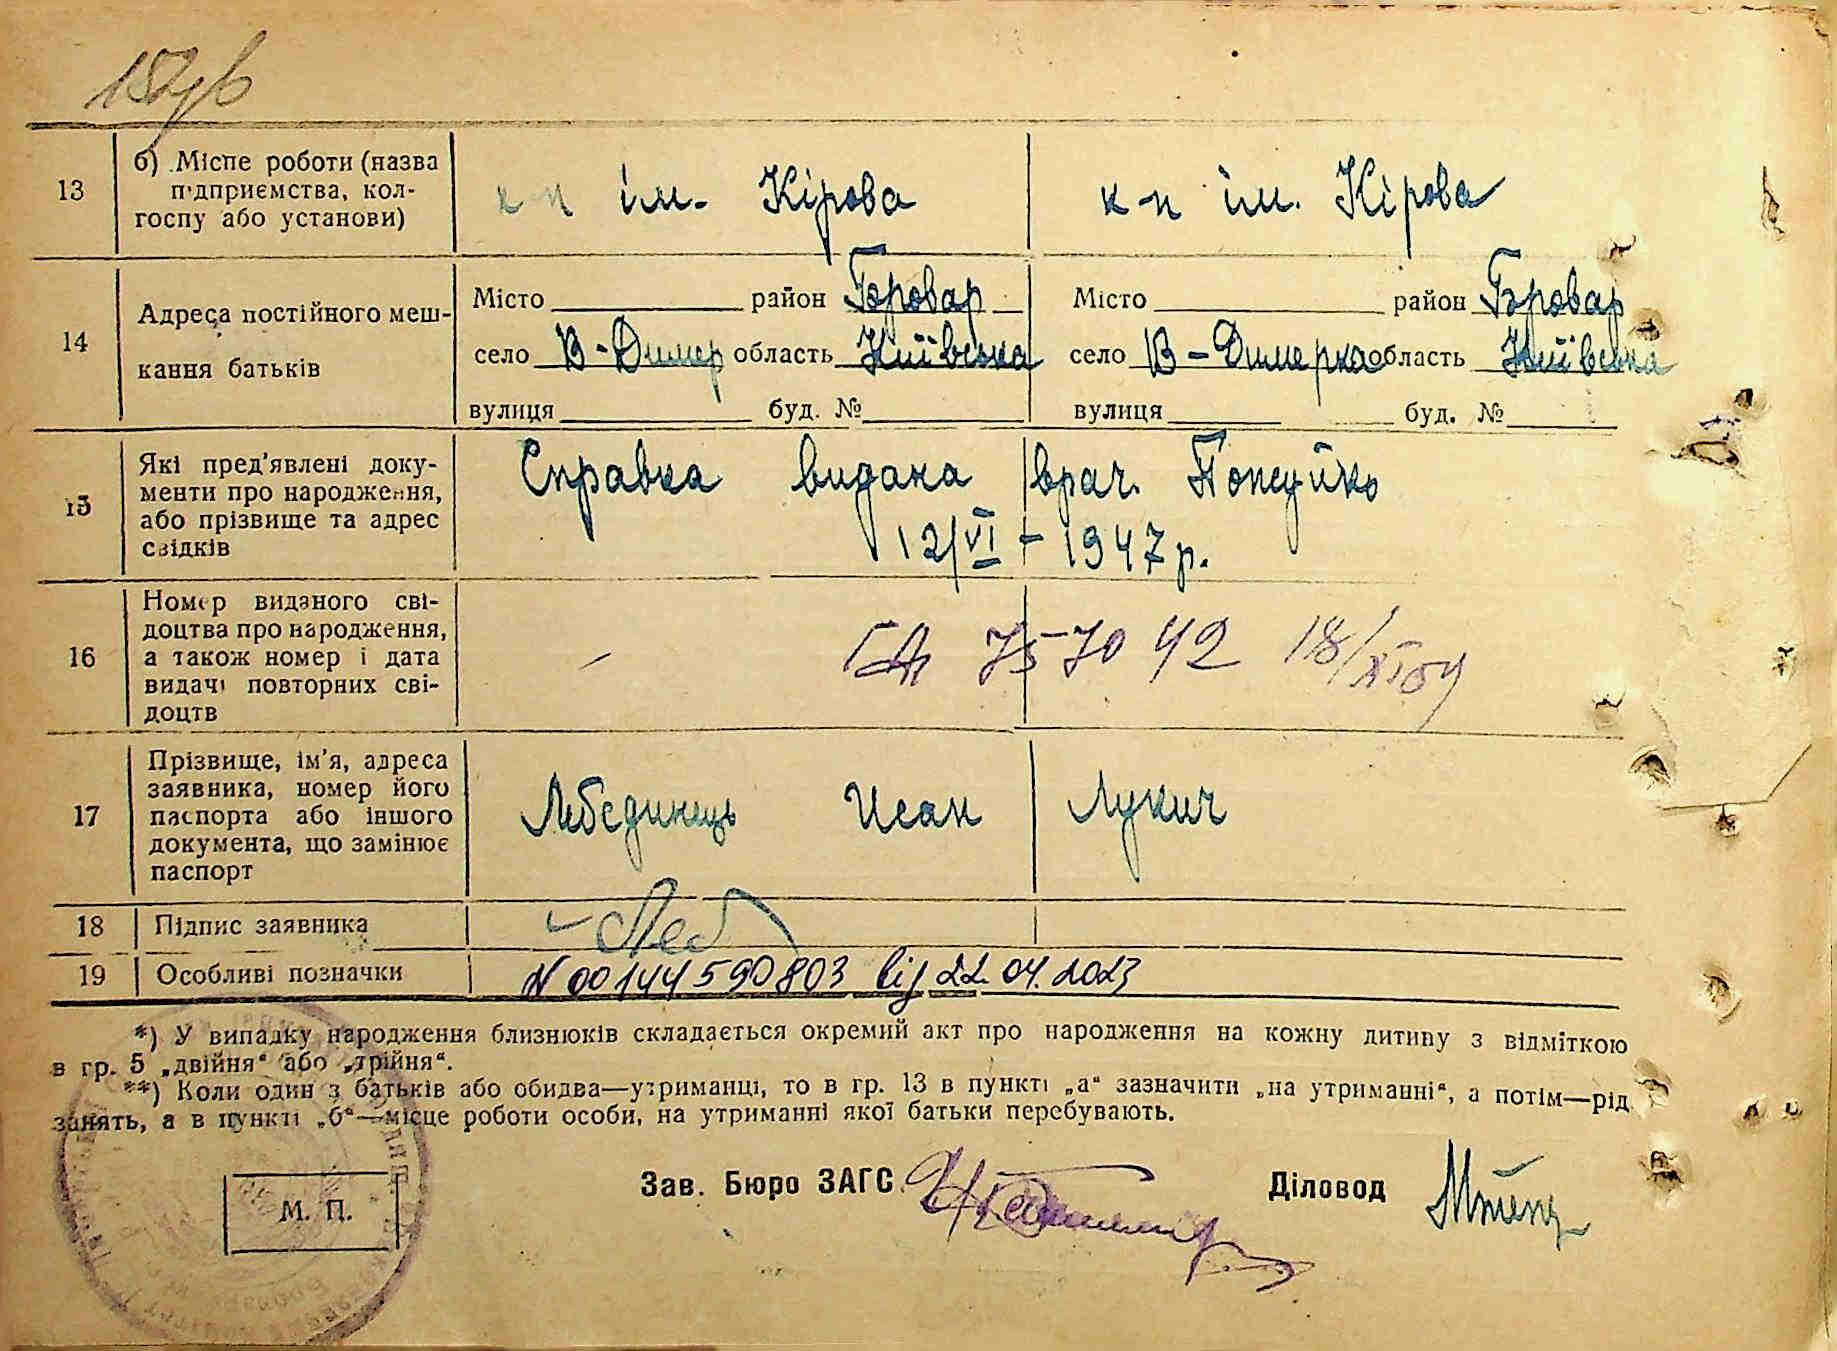 13 б) Місце роботи (назва
підприємства, кол-
госпу або установи)
к-п ім. Кірова к-п ім. Кірова
14 Адреса постійного меш-
кання батьків
Місто район Бровар Місто район Бровар
село В-Димер область Київська село В-Димерка область Київська
вулиця буд. № вулиця буд. №
15 Які пред'явлені доку-
менти про народження,
або прізвище та адрес
свідків
Справка видана врач.
12/VI - 1947 р.
16 Номер виданого сві-
доцтва про народження,
а також номер і дата
видачі повторних сві-
доцтв
— 757042 18/XI
17 Прізвище, ім'я, адреса
заявника, номер його
паспорта або іншого
документа, що замінює
паспорт
Лебединець Исак Лукич
18 Підпис заявника Леб
19 Особливі позначки N 00144590803 від 22.04.2023
*) У випадку народження близнюків складається окремий акт про народження на кожну дитину з відміткою
в гр. 5 „двійня“ або „трійня“.
**) Коли один з батьків або обидва—утриманці, то в гр. 13 в пункті „а“ зазначити „на утриманні“, а потім—рід
занять, а в пункті „б“—місце роботи особи, на утриманні якої батьки перебувають.
Зав. Бюро ЗАГС Діловод
М. П.